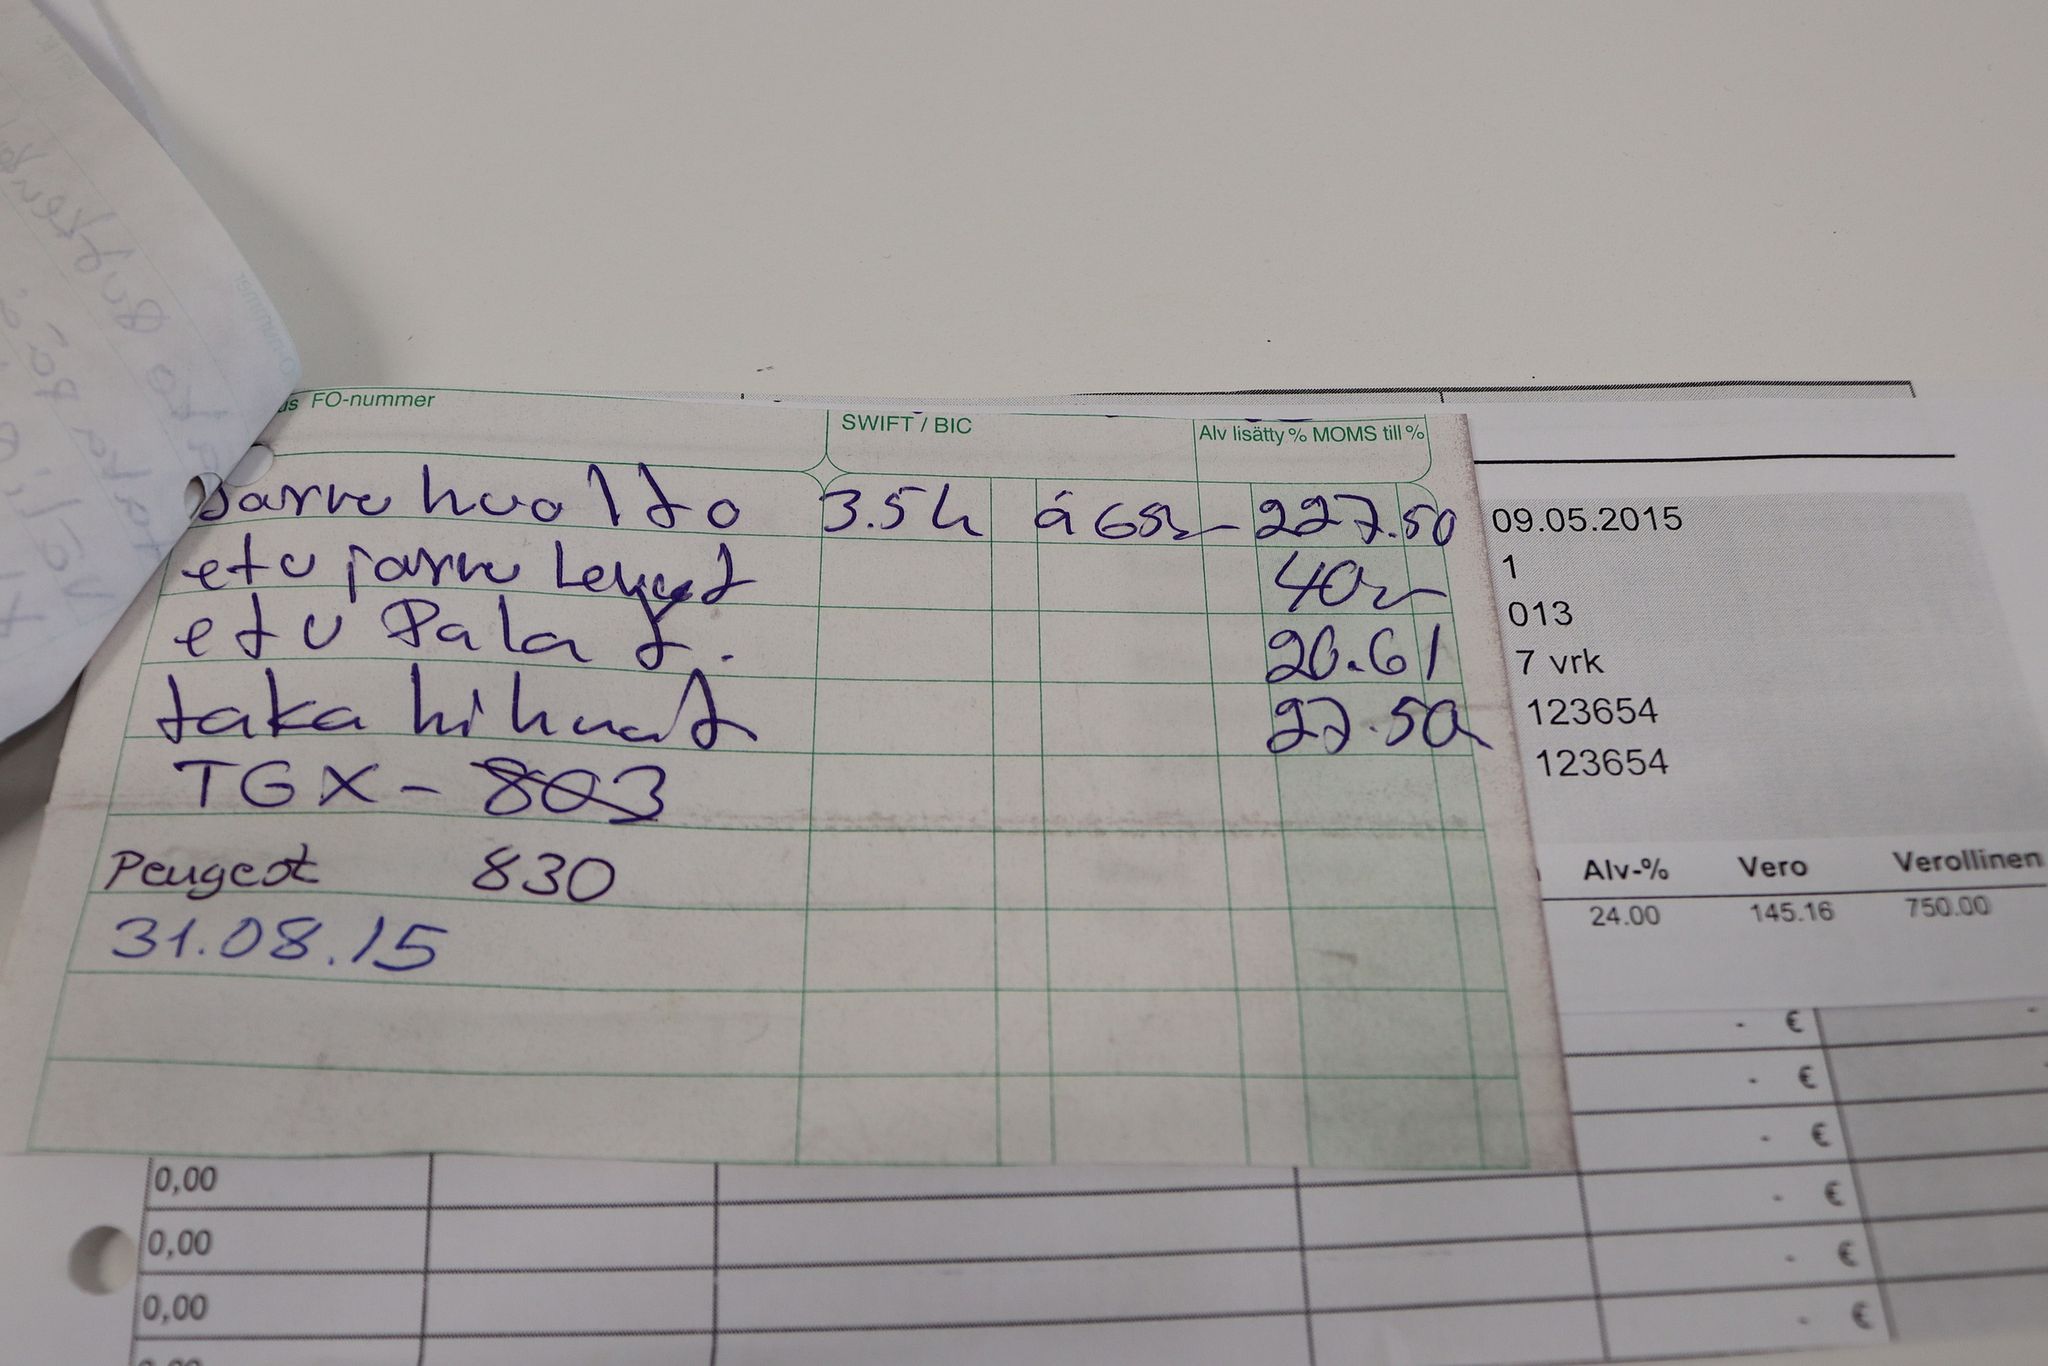 FO-nummer
SWIFT / BIC
Alv lisätty % MOMS till %
Jarru huolto 3.5 h á 65,- 227.50
etu jarru Levyt 40,-
etu Palat. 20.61
taka hihnat 27.50
TGX - 803
Peugeot 830
31.08.15
09.05.2015
1
013
7 vrk
123654
123654
Alv-% Vero Verollinen
24.00 145.16 750.00
- €
- €
- €
0,00 - €
0,00 - €
0,00 - €